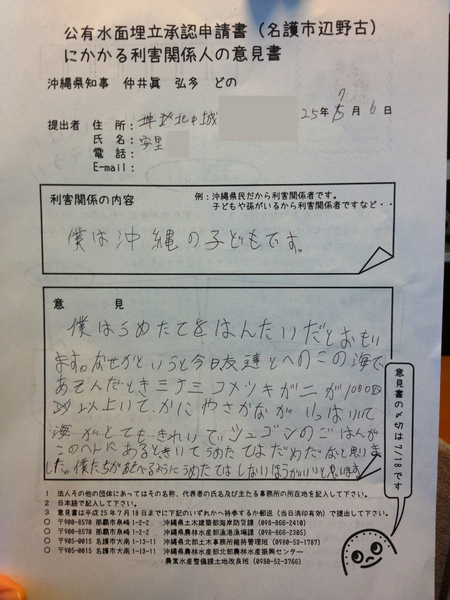 公有水面埋立承認申請書（名護市辺野古）
にかかる利害関係人の意見書
沖縄県知事　仲井眞　弘多　どの
25年7月6日
提出者　住　所：北中城
氏　名：安里
電　話：
E-mail：
利害関係の内容
例：沖縄県民だから利害関係者です。
子どもや孫がいるから利害関係者ですなど・・
僕は沖縄の子どもです。
意　見
僕はうめたてをはんたいだとおもい
ます。なぜかというと今日友達とへのこの海で
あそんだときミナミコメツキガニが1000
以上いて、かにやさかながいっぱいいて
海がとてもきれいでジュゴンのごはんが
このへんにあるときいてうめたてはだめだなと思いま
した。僕たちが遊べるようにうめたてはしないほうがいいと思います。
意見書の〆切は7/18です
1　法人その他の団体にあってはその名称、代表者の氏名及び主たる事務所の所在地を記入して下さい。
2　日本語で記入して下さい。
3　意見書は平成25年7月18日までに下記のいずれかへ持参するか郵送（当日消印有効）で提出して下さい。
○　〒900-8570　那覇市泉崎1-2-2　沖縄県土木建築部海岸防災課（098-866-2410）
○　〒900-8570　那覇市泉崎1-2-2　沖縄県農林水産部漁港漁場課（098-866-2305）
○　〒905-0015　名護市大南1-13-11　沖縄県北部土木事務所維持管理班（0980-53-1787）
○　〒905-0015　名護市大南1-13-11　沖縄県農林水産部北部農林水産振興センター
農業水産整備課土地改良班（0980-52-3766）